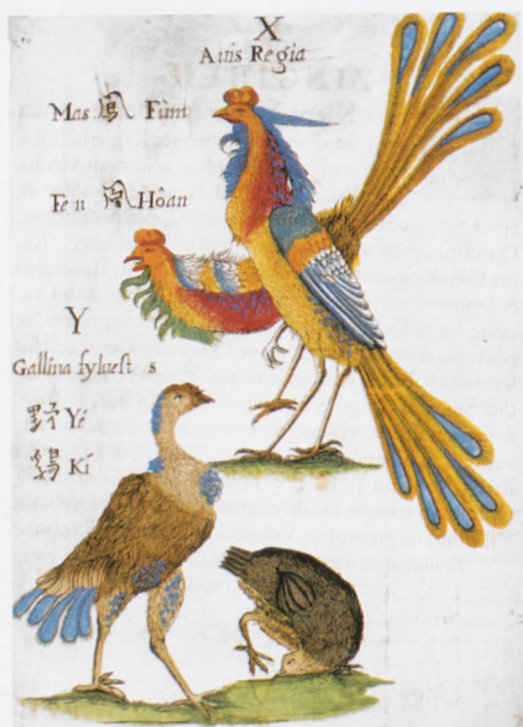 X
Avis Regia
Mas 鳳 Fùm
Fe n 凰 Hôan
Y
Gallina sylvest s
野 Yè
鷄 Kí